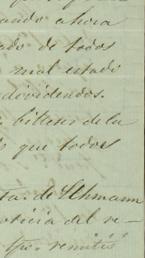 ando ahora
ado de todos
mal estado
dividendos.
billetes de la
que todos
ta. de Uhmann
oticia del re-
que remitió